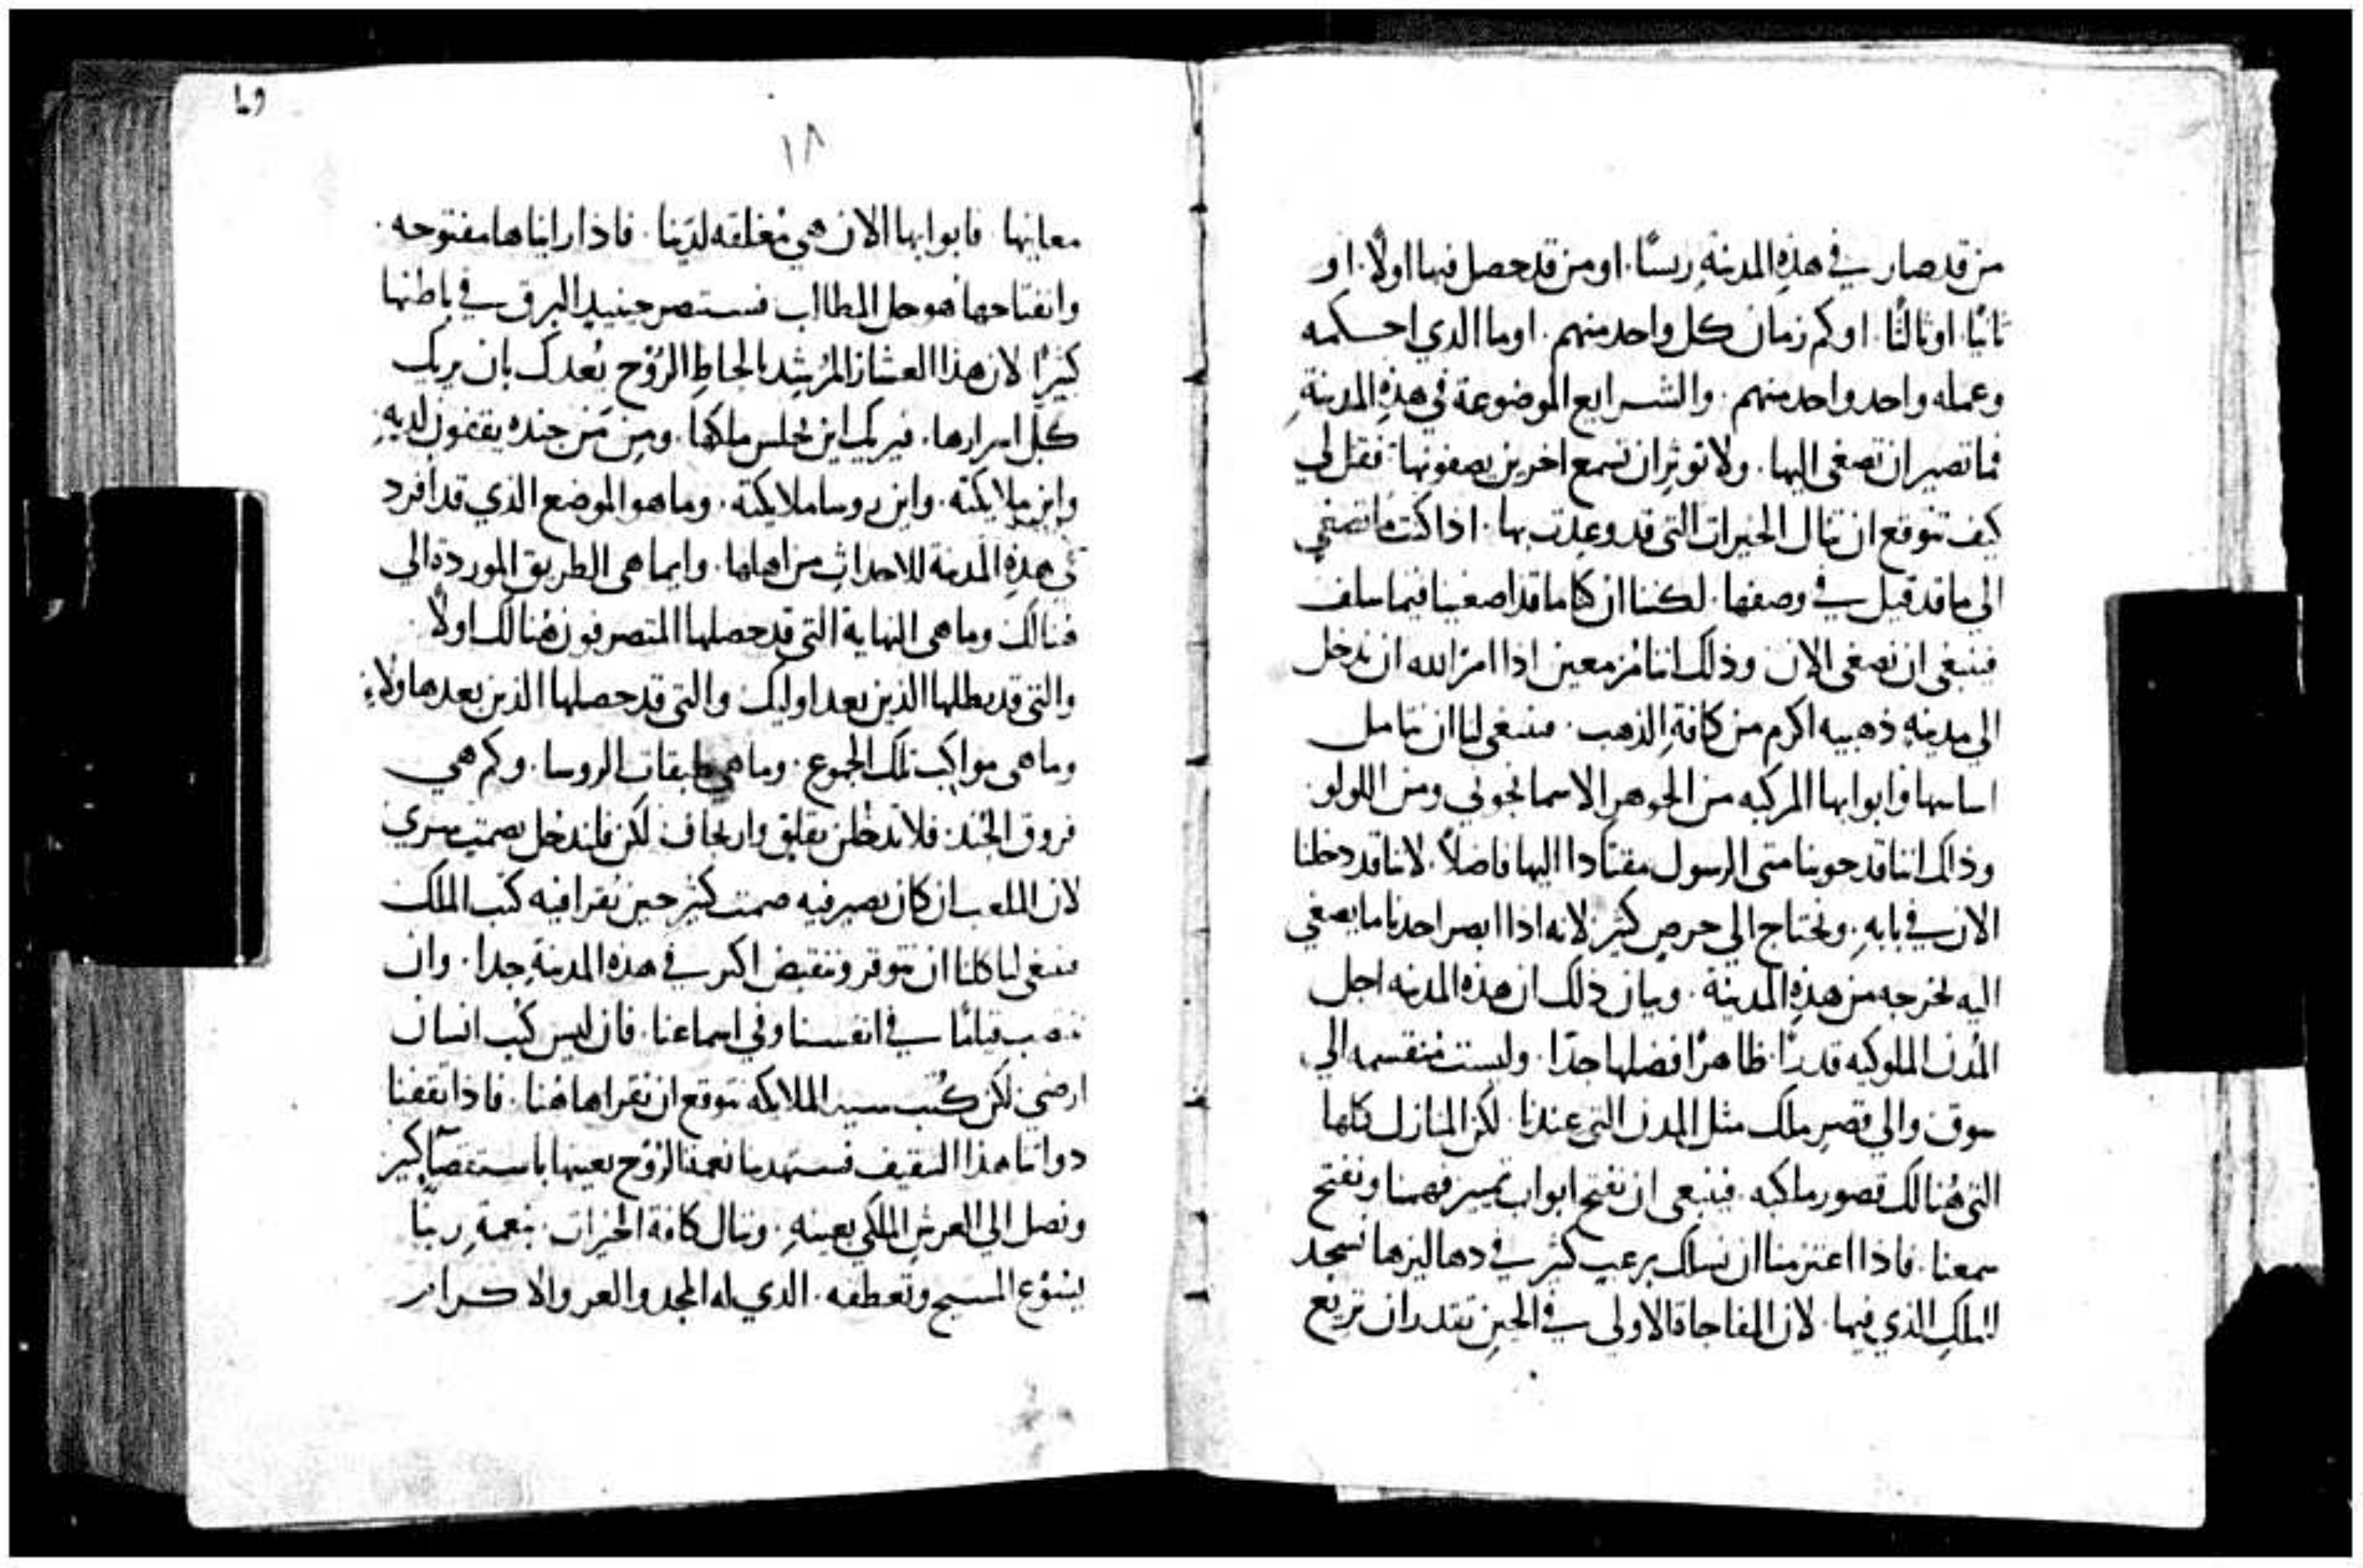 من قد صار في هذه المدينة ريسًا. او من قد حصل فيها اولًا. او
ثانيًا. او ثالثًا. او كم زمان كل واحد منهم. او ما الدي احكمه
وعمله واحد واحد منهم. والشرايع الموضوعة في هذه المدينة
فما تصير ان تصغي اليها. ولا توثر ان تسمع اخرين يصفونها. فقل لي
كيف تتوقع ان تنال الخيرات التي قد وعدت بها. اذا كنت ما تصغي
الي ما قد قيل في وصفها. لكننا ان كنا ما قد اصغينا فيما سلف
فينبغي ان نصغي الان وذلك اننا مزمعين اذا امر الله ان ندخل
الي مدينه ذهبيه اكرم من كافة الذهب. فينبغي لنا ان نتامل
اساسها وابوابها المركبه من الجوهر الاسمانجوني ومن اللولو.
وذلك اننا قد حوينا متى الرسول مقتادا اليها فاضلًا. لاننا قد دخلنا
الان في بابه. ونحتاج الي حرص كثير لانه اذا ابصر احدنا ما يصغي
اليه يخرجه من هذه المدينة. وبيان ذلك ان هذه المدينه اجل
المدن الملوكيه قدرًا. ظاهرًا فضلها جدًا. وليست منقسمه الي
سوق والي قصر ملك مثل المدن التي عندنا. لكن المنازل كلها
التي هنالك قصور ملكيه. فينبغي ان نفتح ابواب تمييز فهمنا ونفتح
سمعنا. فاذا اعتزمنا ان نسلك برعب كثير في دهاليزها نسجد
للملك الذي فيها. لان المفاجاة الاولي في الحين تقتدر ان تريع
٦٩
١٨
معاينها. فابوابها الان هي مغلقه لدينا. فاذا رايناها مفتوحه.
وانفتاحها هو حل المطالب فسنبصر حينيد البرق في باطنها
كثيرًا لان هذا العشار المرشد بالحاط الروح يعدك بان يريك
كل اسرارها. فيريك اين يجلس ملكها. ومن من جنده يقفون لديه
واين ملايكته. واين روسا ملايكته. وما هو الموضع الذي قد افرد
في هذه المدينة للاحداث من اهلها. وايما هي الطريق الموردة الي
هنالك وما هي النهاية التي قد حصلها المتصرفون هنالك اولًا
والتي قد يطلها الذين بعد اوليك والتي قد حصلها الذين بعد هاولاء
وما هي مواكب تلك الجموع. وما هي طبقات الروسا. وكم هي
فروق الجند. فلا ندخلن بقلق وارتجاف لكن فلندخل بصمت سري
لان الملعب ان كان يصير فيه صمت كثير حين تقرا فيه كتب الملك
فينبغي لنا كلنا ان نتوقر وننقبض اكثر في هذه المدينة جدا. وان
ننتصب قيامًا في انفسنا وفي اسماعنا. فان ليس كتب انسان
ارضي لكن كتب سيد الملايكه نتوقع ان نقراها هنا. فاذا ثقفنا
دواتنا هذا التثقيف فستهدينا نعمة الروح بعينها باستقصا كثير
ونصل الي العرش الملكي بعينه. وننال كافة الخيرات. بنعمة ربنا
يسوع المسيح وتعطفه. الدي له المجد والعز والاكرام